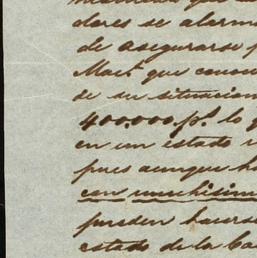 dores se alarm
de asegurarse p
Mac.l que conoc
de su situacion
400.000 p.s lo q
en un estado
pues aunque ha
con muchisim
pueden hacerse
estado de la Ca